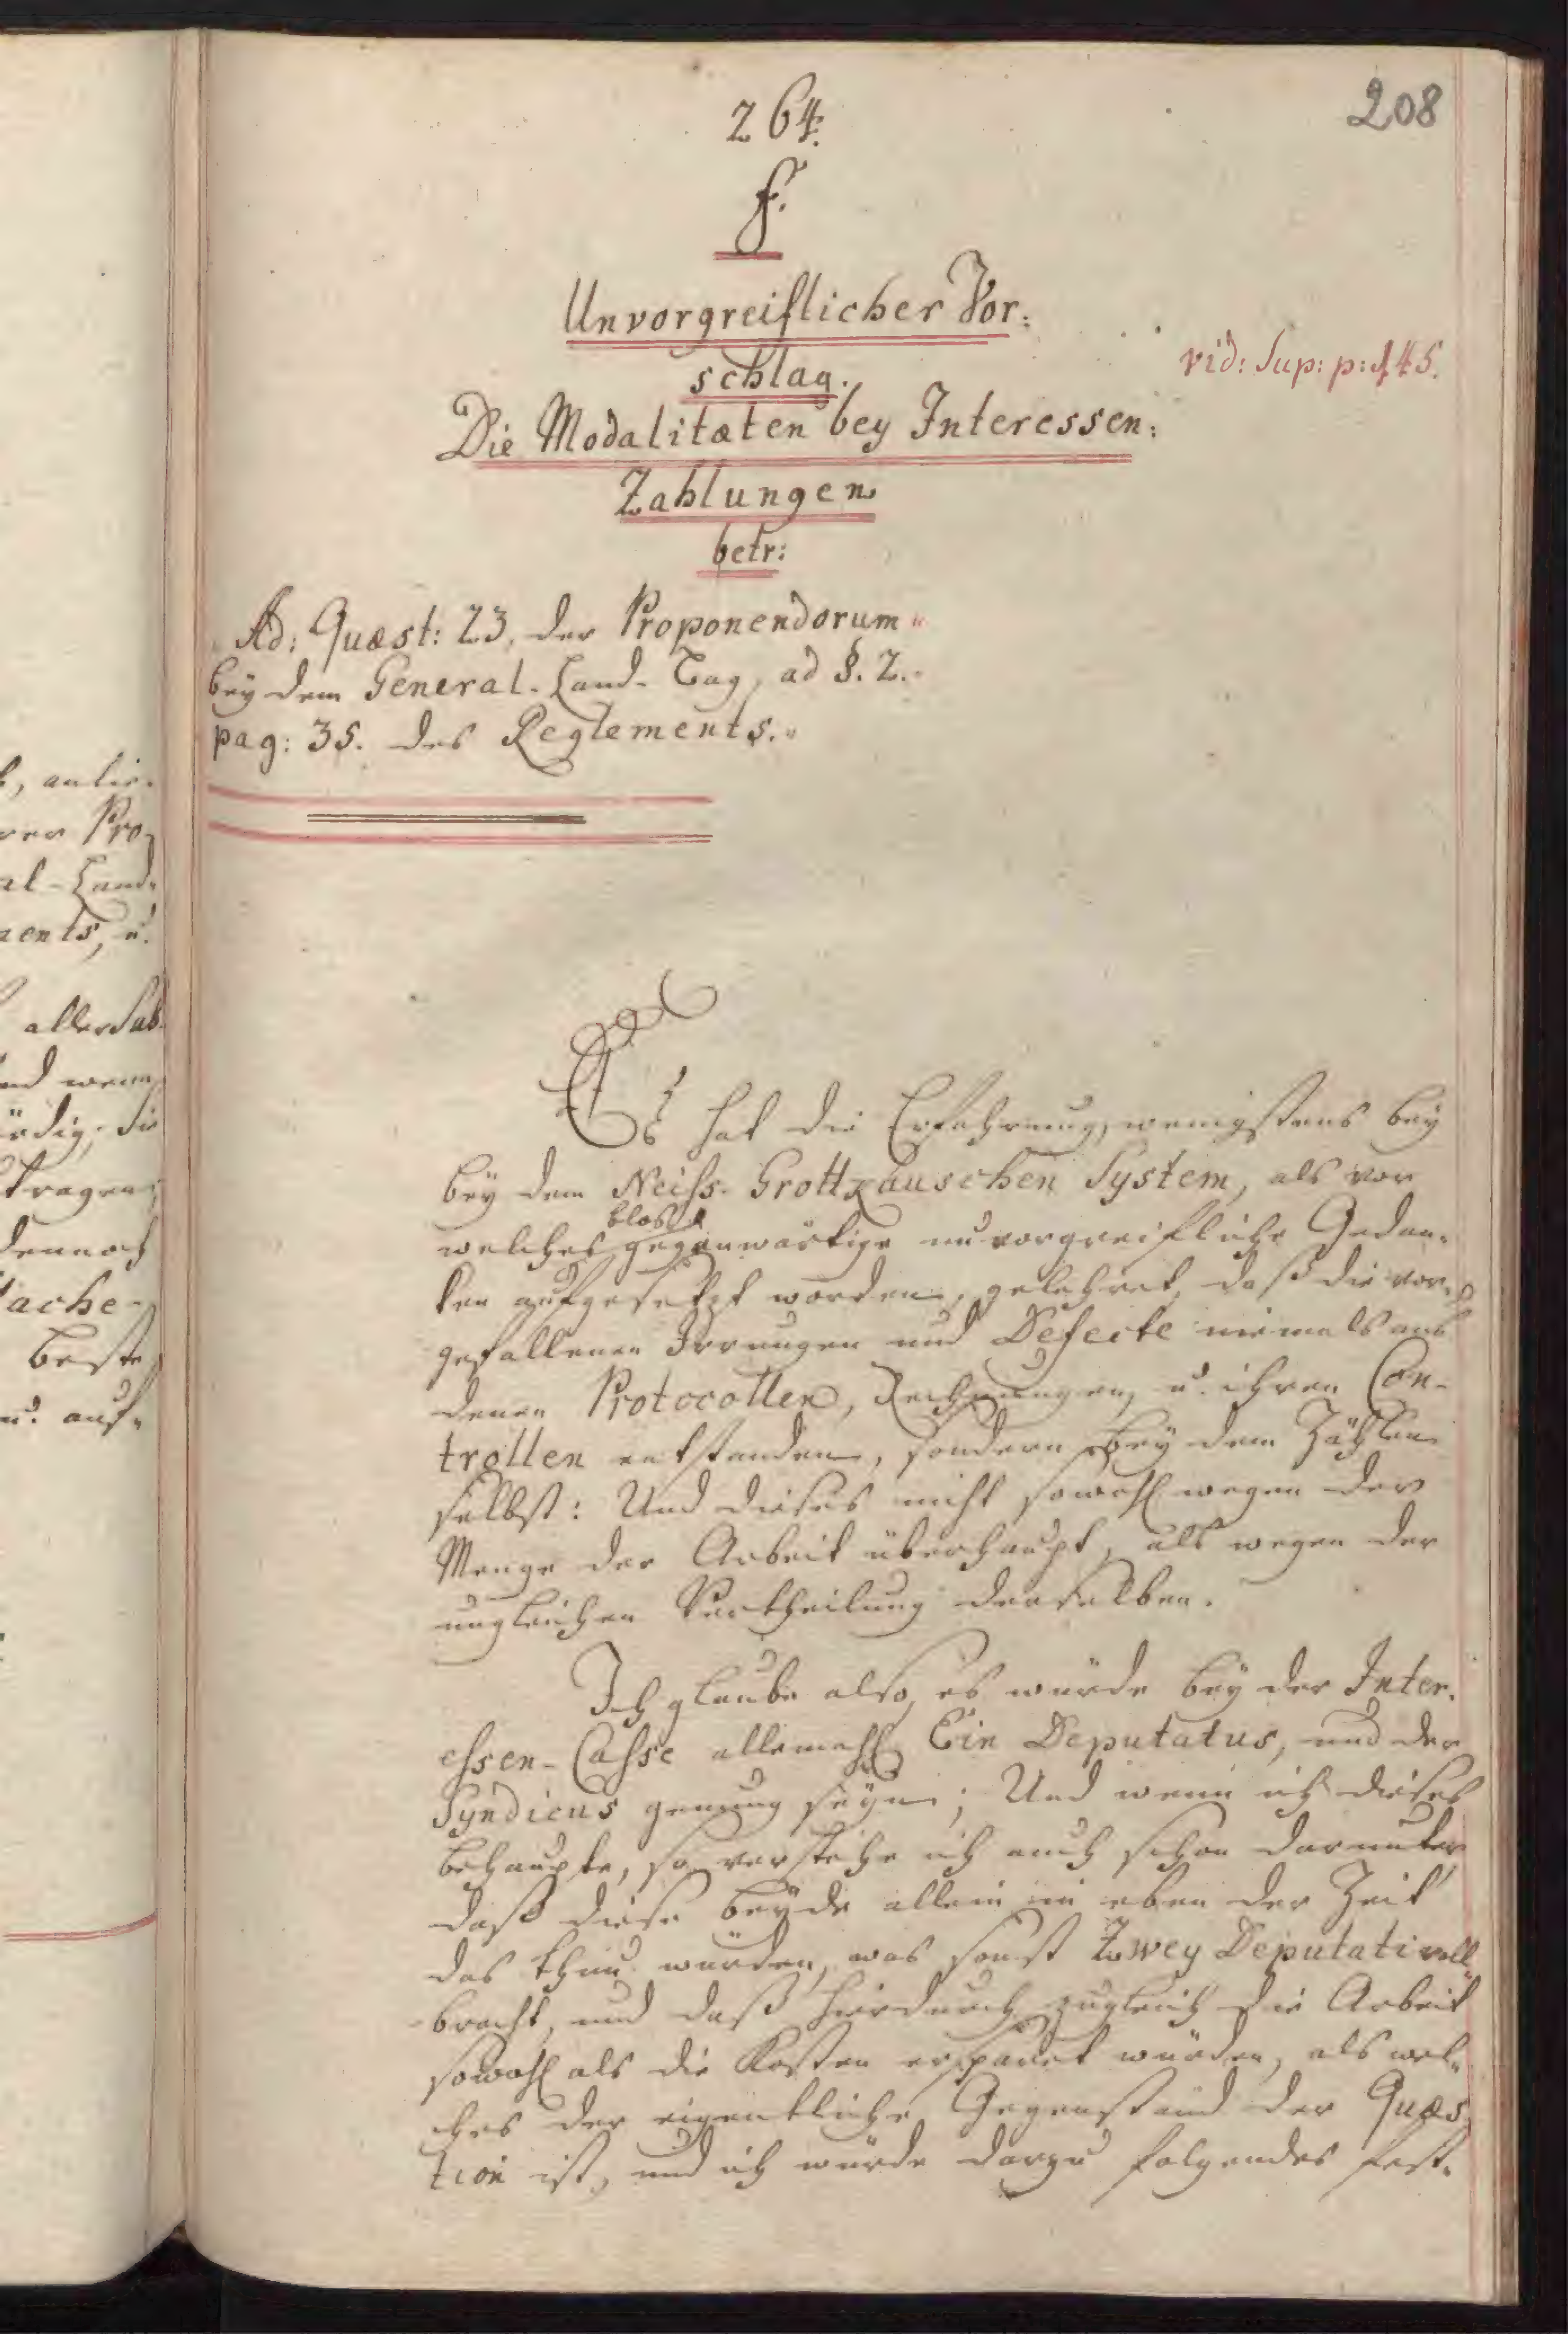 b, anlie-
rer Pro-
al-Land-
ments, u.
allerSub-
und wenn
würdig, die
tragen,
dennoch
Sache-
beste
u. auf-
208
264.
F.
Unvorgreiflicher Vor:
schlag.
vid: Sup: p: 145.
Die Modalitæten bey Interessen:
Zahlungen
betr:
„Ad: Quæst: 23. der Proponendorum“
bey dem General-Land-Tag, ad §. 2.
pag: 35. des Reglements.“
Es hat die Erfahrung, wenigstens bey
bey dem Neiss-Grottkauschen System, als vor
welches blos gegenwärtige unvorgreifliche Gedan-
ken aufgesetzt worden, gelehret, daß die vor-
gefallenen Irrungen und Defecte niemals aus
denen Protocollen, Rechnungen, u. ihren Con-
trollen entstanden, sondern bey dem Zählen
selbst: Und dieses nicht sowohl wegen der
Menge der Arbeit überhaupt, als wegen der
ungleichen Vertheilung derselben.
Ich glaube also, es würde bey der Inter-
essen-Casse allemahl Ein Deputatus, und der
Syndicus genung seyn; Und wenn ich dieses
behaupte, so verstehe ich auch schon darunter
daß diese beyde allein in eben der Zeit
das thun würden, was sonst Zwey Deputati voll-
bracht, und daß hierdurch zugleich die Arbeit
sowohl als die Kosten ersparet würden, als wel-
ches der eigentliche Gegenstand der Quæs-
tion ist, und ich würde darzu folgendes fest-